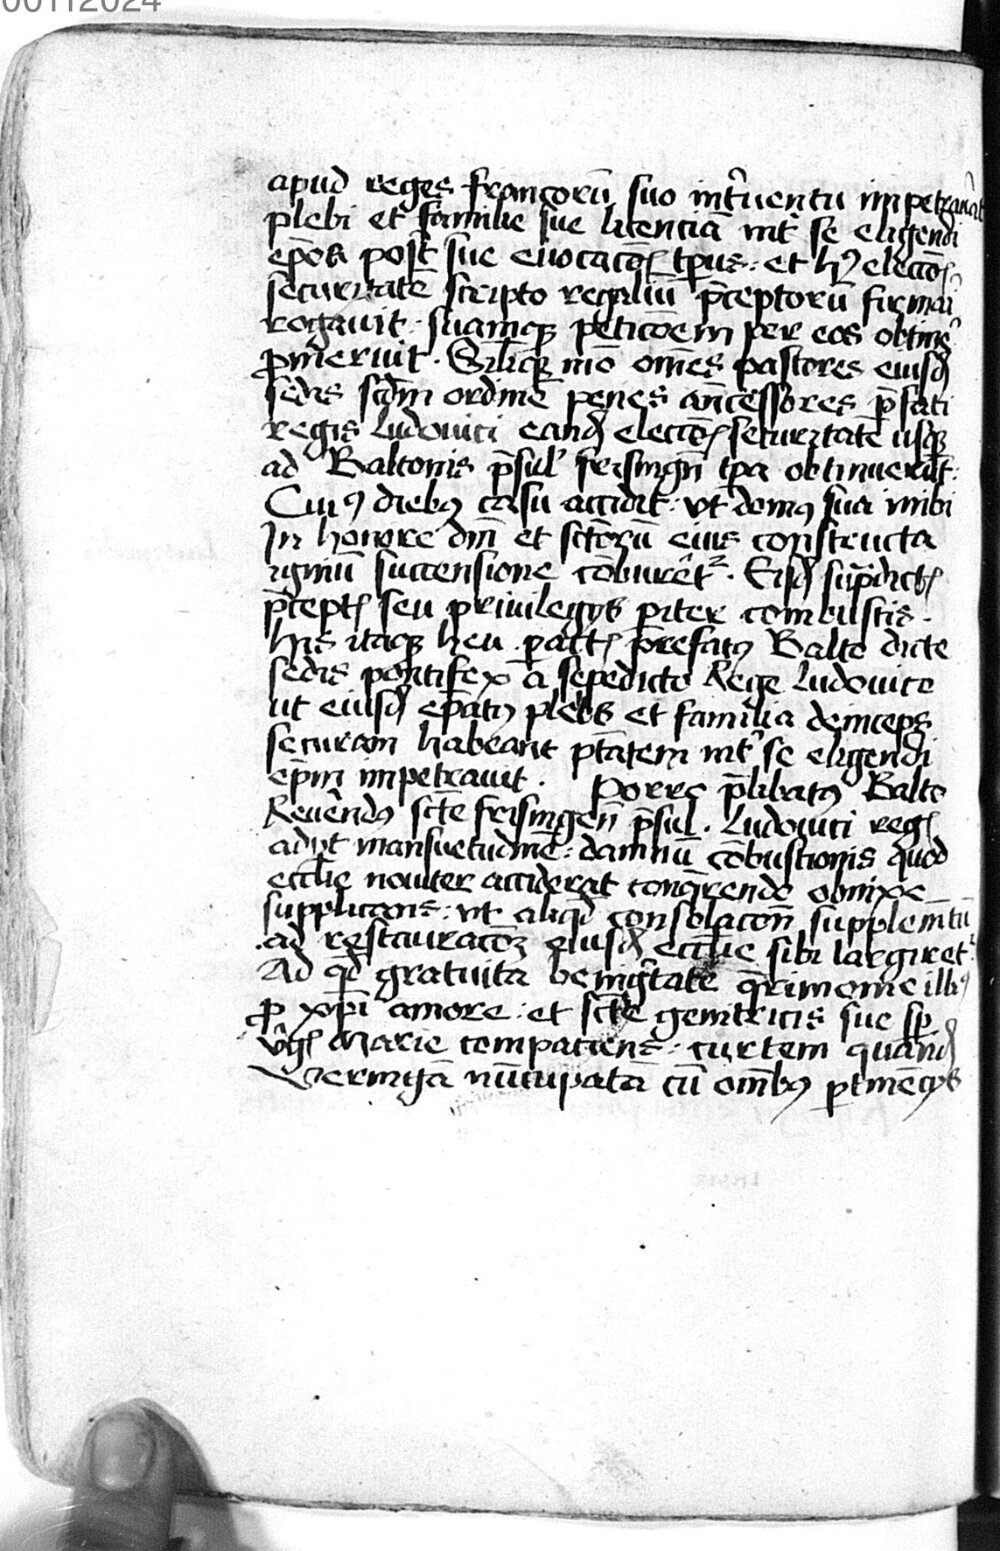 00112024
apud reges francorū suo int̄uentu impetrauit
plebi et familie sue licenciā int̄ se eligendi
ep̄os post sue euocacōīs tp̄us · et hꝰ eleccōīs
securitatē scripto regaliū p̄ceptorū firmari
rogauit · suamqꝫ peticōem per eos obtin̄e
ꝓmeruit · Silicqꝫ mō om̄es pastores eiusd̄
sedis scd̄m ordinē penes an̄cessores p̄fati
regis Ludouici eand̄ eleccōīs securitatē usqꝫ
ad Baltonis p̄sul' frisingn̄ tp̄a obtinuerūt ·
Cuiꝰ diebꝰ casu accidit · vt domꝰ sua inibi
In honore dn̄i et sctōrū eius constructa
igniū succensione cōburēt᷑ · Eisd̄ sup̄dictis
p̄ceptis seu priuilegijs pit̄er combustis ·
his itaqꝫ heu p̄actis prefatꝰ Balto dicte
sedis pontifex a sepedicto Rege Ludouico
ut eiusd̄ ep̄atꝰ plebs et familia deinceps
securam habeant p̄tatem int̄ se eligendi
ep̄m impetrauit · Porro p̄libatꝰ Balto
Reuēndꝰ sctē frisingen̄ p̄sul · Ludouici regis
adijt mansuetudinē · damnū cōbustionis quod
eccl̄ie nouiter acciderat conq̄rendo obnixe
supplicans · vt aliqd̄ consolacōn̄ supplem̄tū
ad restauracōꝫ eiusd̄ eccl̄ie sibi largiret᷑
Ad qd̄ gratuita benignitate q̄rimonie illiꝰ
ꝓ xp̄i amore · et sctē genitricis sue sp̄
v̄gīs Marie compaciens · curtem quand̄
Veringā nūcupatā cū om̄ibꝰ ꝑtinēcijs